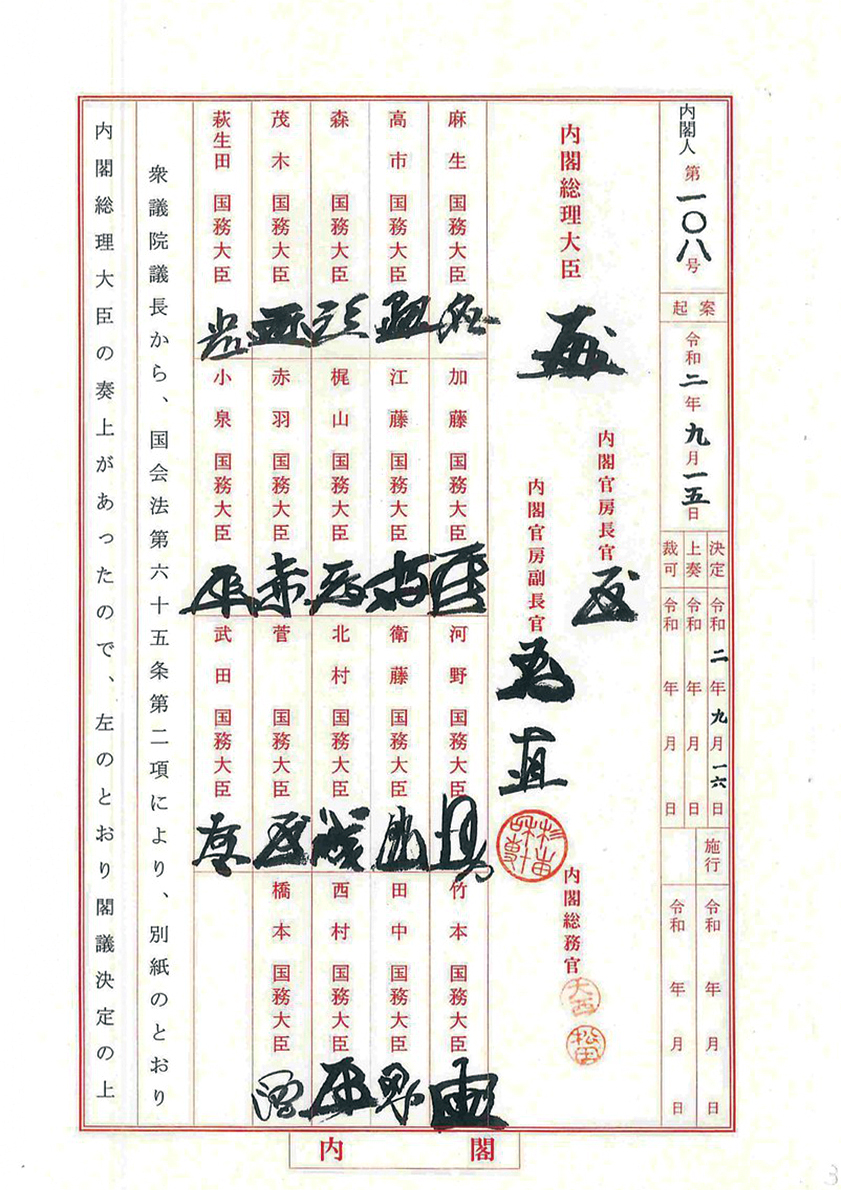 内閣人第一〇八号
起案
令和二年九月一五日
決定 令和二年九月一六日
上奏 令和 年 月 日
裁可 令和 年 月 日
施行 令和 年 月 日
令和 年 月 日
内閣総理大臣
内閣官房長官
内閣官房副長官
内閣総務官
大西
松田
麻生国務大臣
加藤国務大臣
河野国務大臣
竹本国務大臣
高市国務大臣
江藤国務大臣
衛藤国務大臣
田中国務大臣
森国務大臣
梶山国務大臣
北村国務大臣
西村国務大臣
茂木国務大臣
赤羽国務大臣
菅国務大臣
橋本国務大臣
萩生田国務大臣
小泉国務大臣
武田国務大臣
衆議院議長から、国会法第六十五条第二項により、別紙のとおり
内閣総理大臣の奏上があったので、左のとおり閣議決定の上
内閣
3